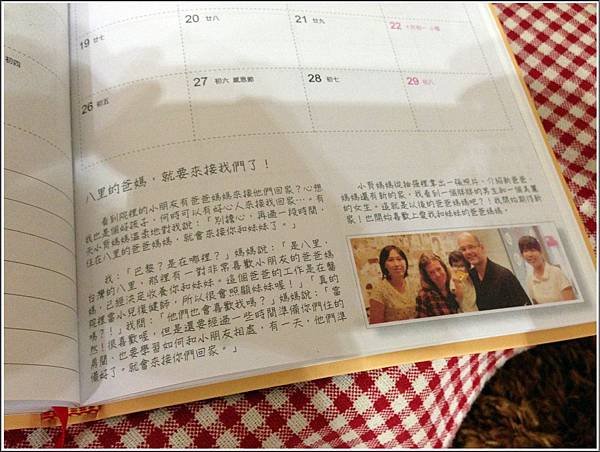 初四
19 廿七
20 廿八
21 廿九
22 十月初一 小雪
26 初五
27 初六 感恩節
28 初七
29 初八
八里的爸媽，就要來接我們了！
看到院裡的小朋友有爸爸媽媽來接他們回家？心想
我也是個好孩子，何時可以有好心人來找我回家…。有
天小賢媽媽溫柔地對我說：「別擔心，再過一段時間，
住在八里的爸爸媽媽，就會來接你和妹妹了。」
我：「巴黎？是在哪裡？」媽媽說：「是八里，
台灣的八里，那裡有一對非常喜歡小朋友的爸爸媽
媽，已經決定收養你和妹妹。這個爸爸的工作是在醫
院裡當小兒復健師，所以很會照顧妹妹喔！」「真的
嗎？！」我問：「他們也會喜歡我嗎？」媽媽說：「當
然！很喜歡喔，但是還要經過一些時間準備你們住的
房間，也要學習如何和小朋友相處，有一天，他們準
備好了。就會來接你們回家。」
小賢媽媽從抽屜裡拿出一張照片，介紹新爸爸、
媽媽還有新的家，我看到一個胖胖的男生和一個美麗
的女生。這就是以後的爸爸媽媽吧？！我開始期待新
家！也開始喜歡上愛我和妹妹的爸爸媽媽。